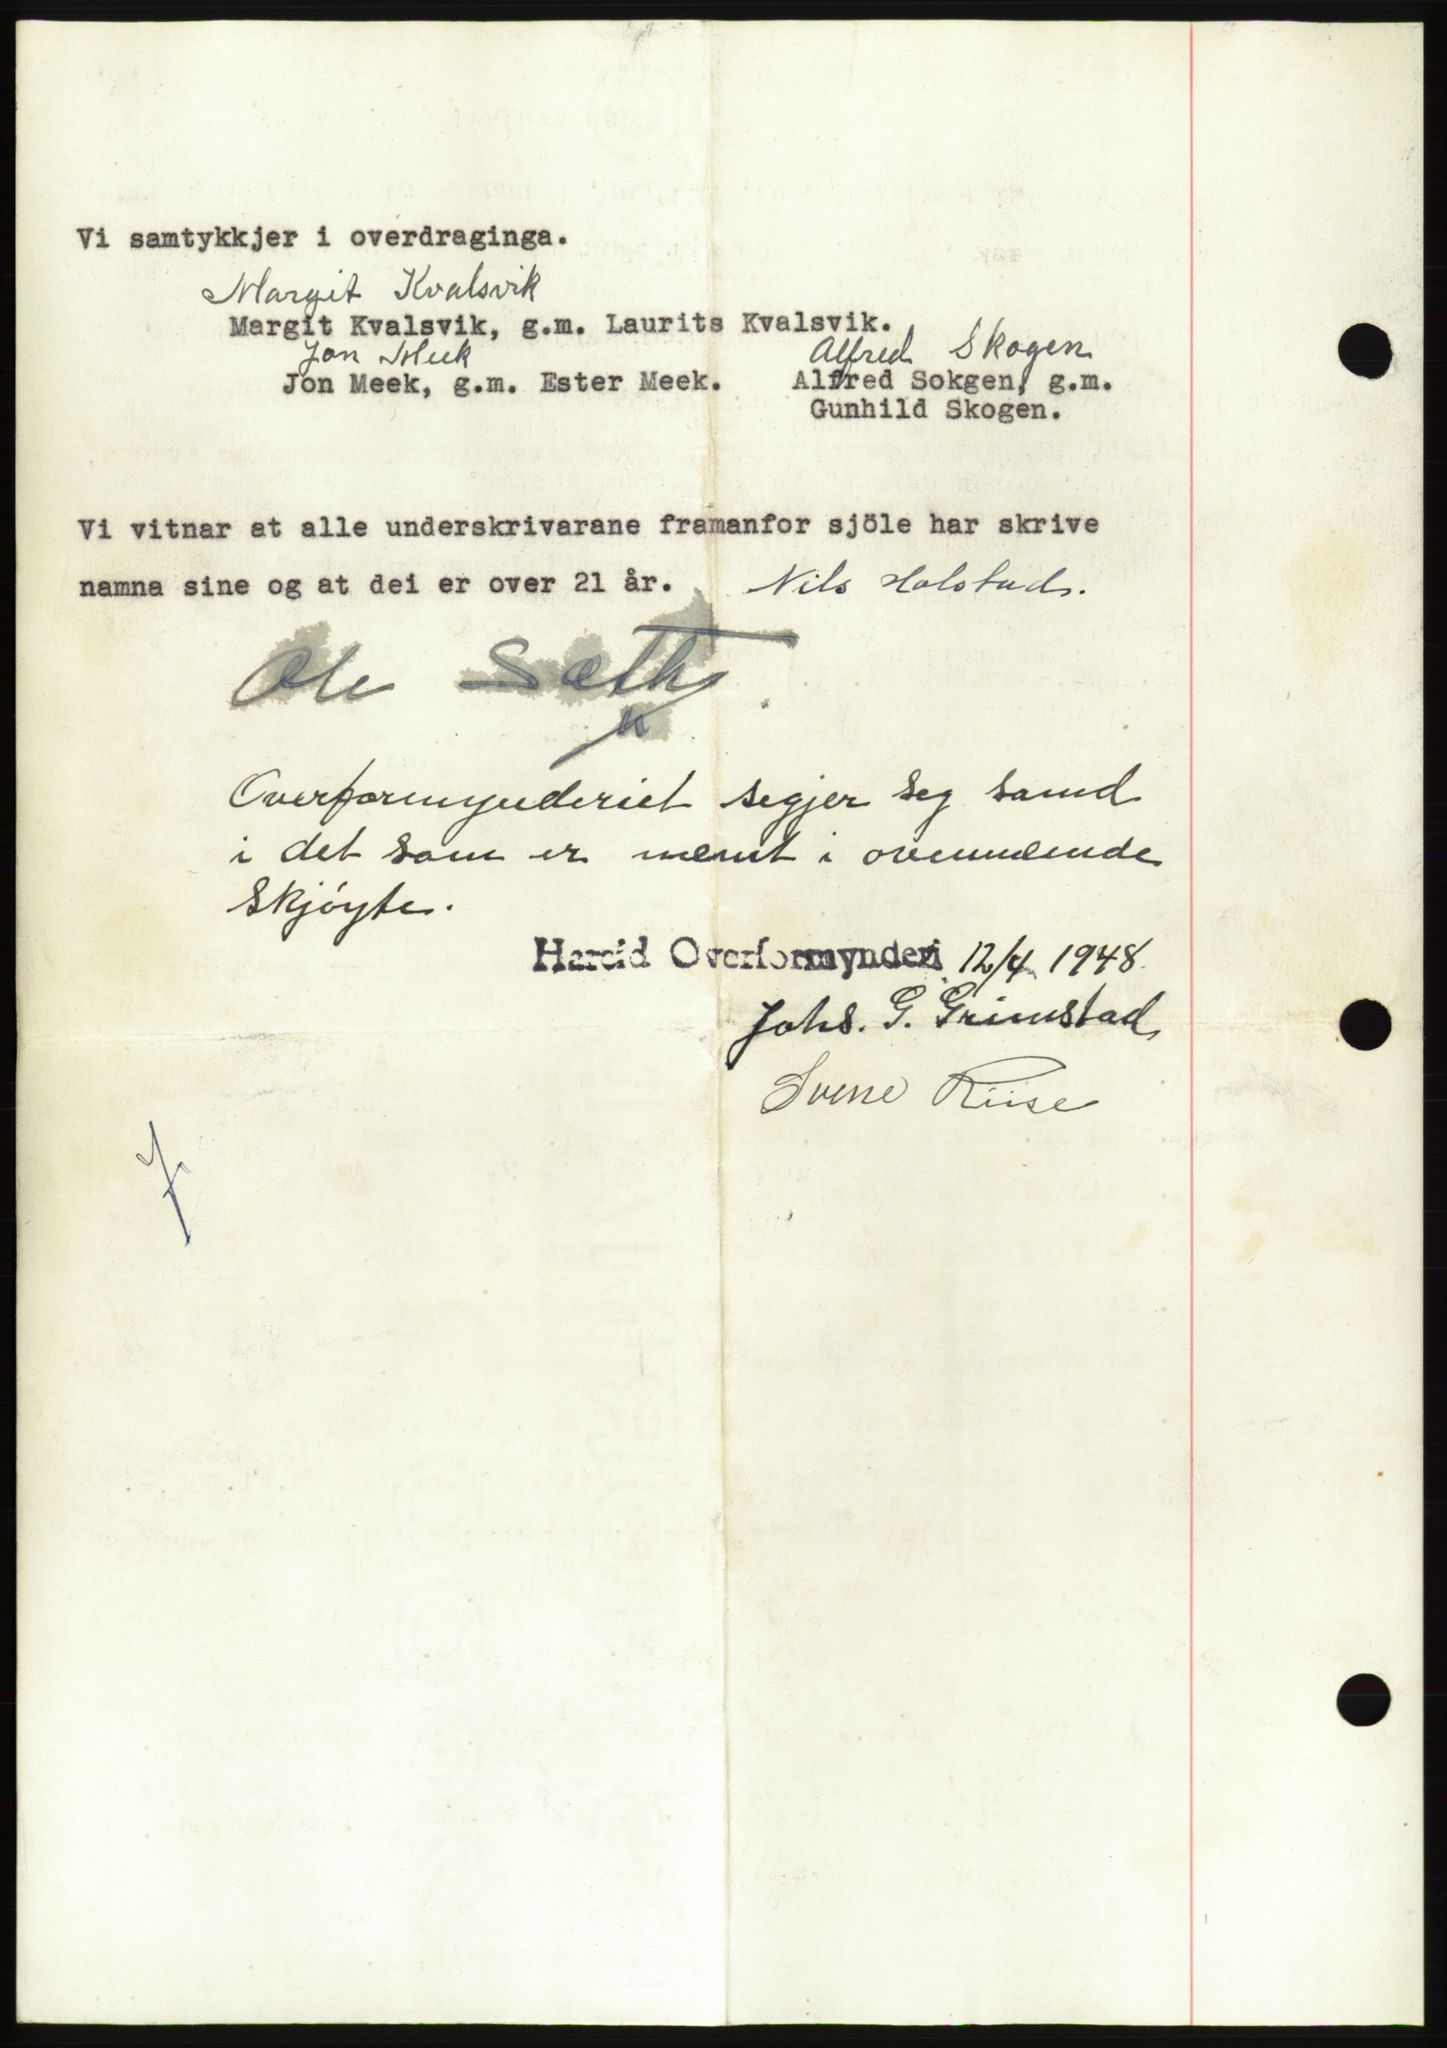 Vi samtykkjer i overdraginga.
Margit Kvalsvik
Margit Kvalsvik, g.m. Laurits Kvalsvik.
Jon Meek
Alfred Skogen
Jon Meek, g.m. Ester Meek.
Alfred Sokgen, g.m.
Gunhild Skogen.
Vi vitnar at alle underskrivarane framanfor sjöle har skrive
namna sine og at dei er over 21 år. Nils Holstad.
Ole Sæth
Overformynderiet segjer seg samd
i det som er nemnt i ovennemde
Skjøyte.
Hareid Overformynderi 12/4 1948.
Johs. G. Grimstad
Sverre Riise